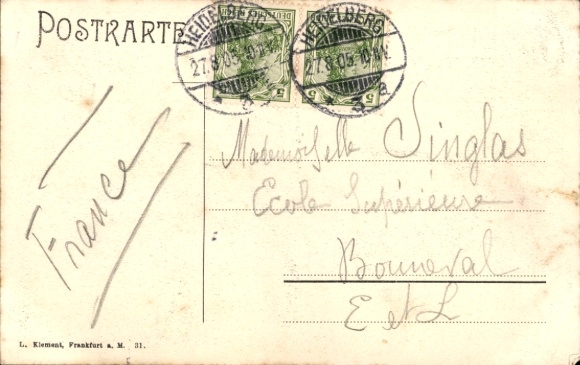 POSTKARTE
HEIDELBERG
27.8.05. 10-11V.
* 3 a
HEIDELBERG
27.8.05. 10-11V.
* 3 a
DEUTSCHES
5
5
France
Mademoiselle Singlas
Ecole Supérieure
Bonneval
E et L
L. Klement, Frankfurt a. M. 31.